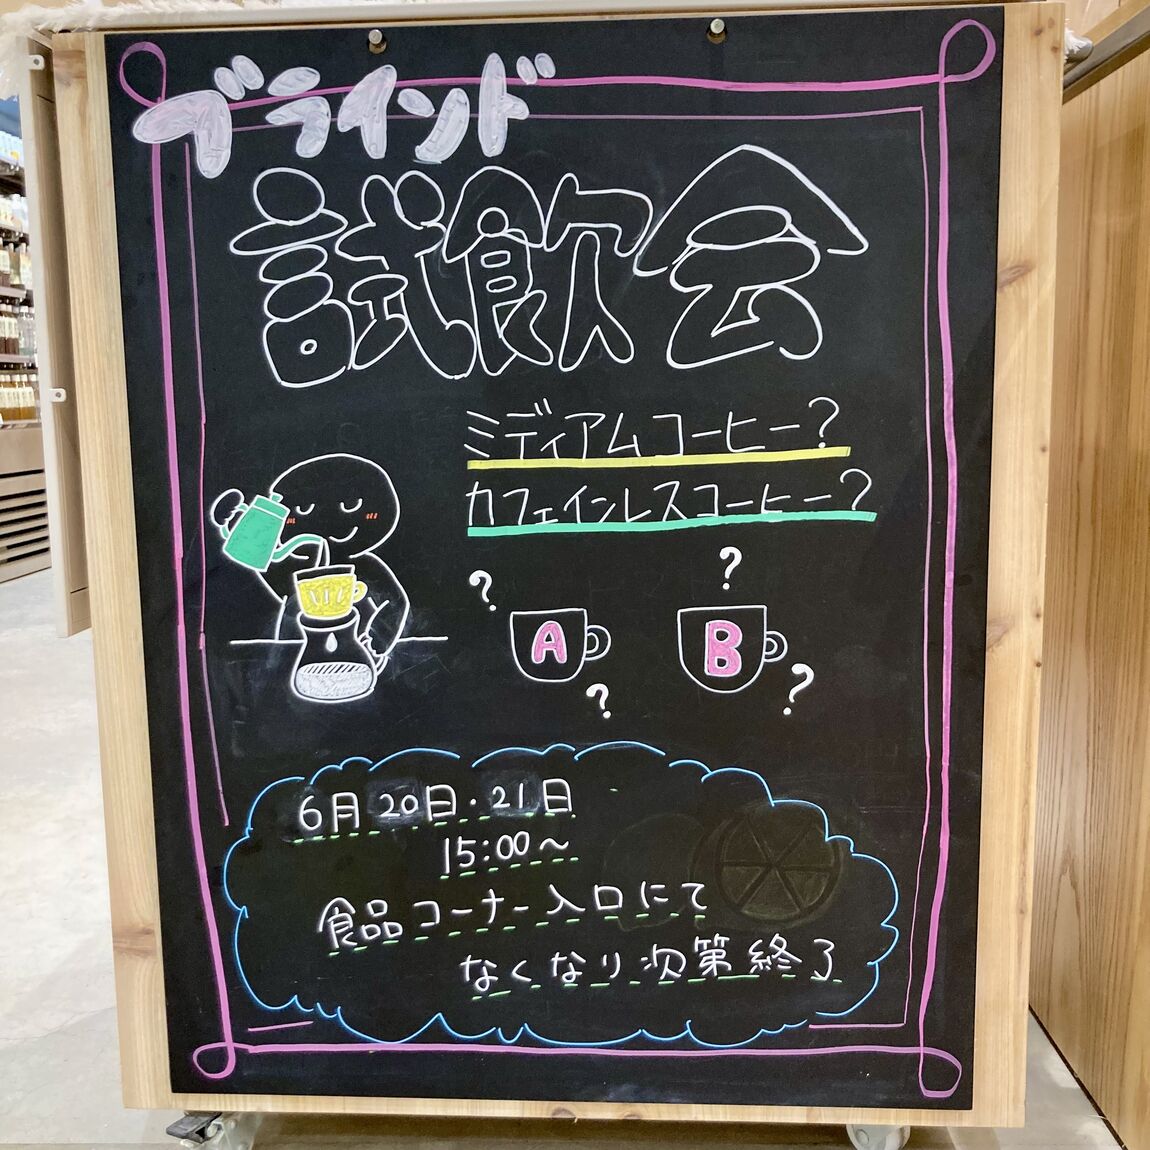 ブラインド
試飲会
ミディアムコーヒー?
カフェインレスコーヒー?
?
?
A
B
?
?
6月20日・21日
15:00~
食品コーナー入口にて
なくなり次第終了